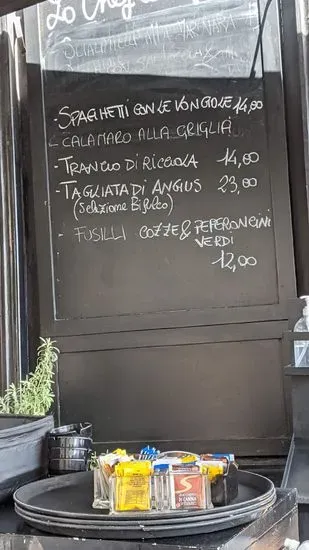 Lo Chef
ALLA MARINARA
- SPAGHETTI CON LE VONGOLE 14,00
CALAMARO ALLA GRIGLIA
- TRANCIO DI RICCIOLA 14,00
- TAGLIATA DI ANGUS 23,00
(Selezione Bifulco)
- FUSILLI COZZE & PEPERONCINI
VERDI
12,00
DI CANNA